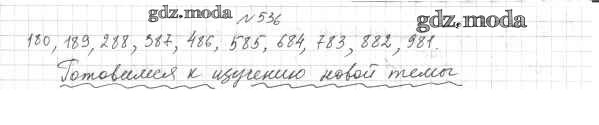 gdz.moda №536 gdz.moda
180, 189, 288, 387, 486, 585, 684, 783, 882, 981.
Готовимся к изучению новой темы